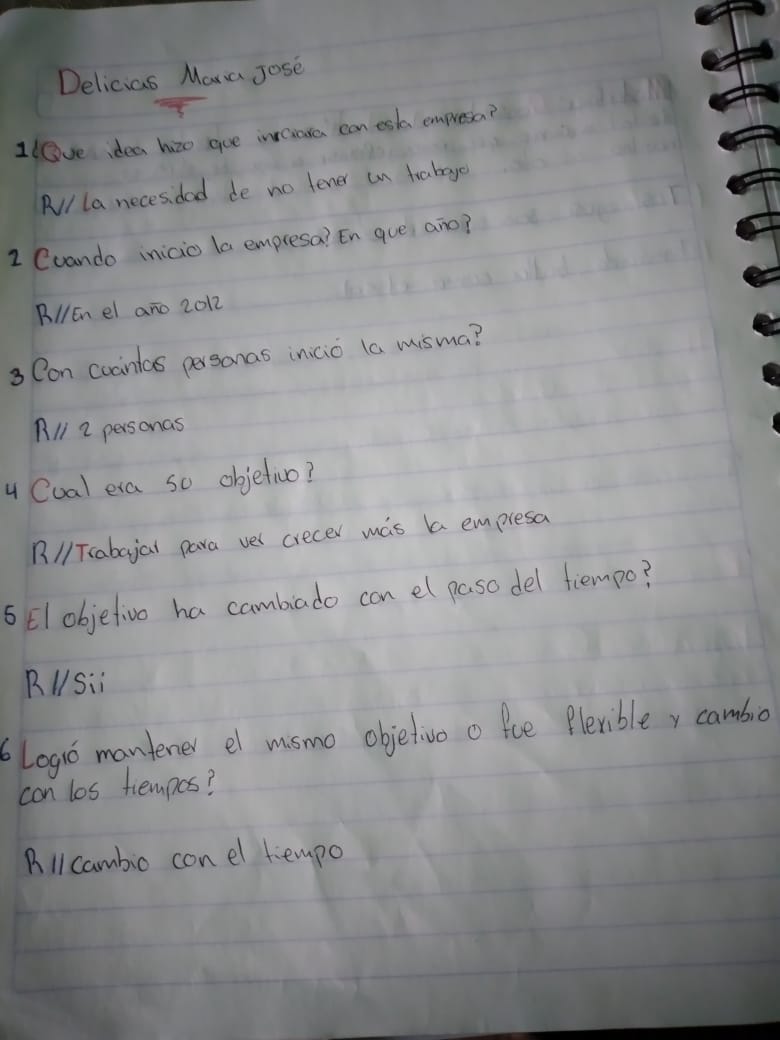 Delicias Maria José
1 ¿Que idea hizo que iniciara con esta empresa?
R// La necesidad de no tener un trabajo
2 Cuando inicio la empresa? En que año?
R// En el año 2012
3 Con cuántas personas inició la misma?
R// 2 personas
4 Cual era su objetivo?
R// Trabajar para ver crecer más la empresa
5 El objetivo ha cambiado con el paso del tiempo?
R// Sii
6 Logró mantener el mismo objetivo o fue flexible y cambio
con los tiempos?
R// cambio con el tiempo